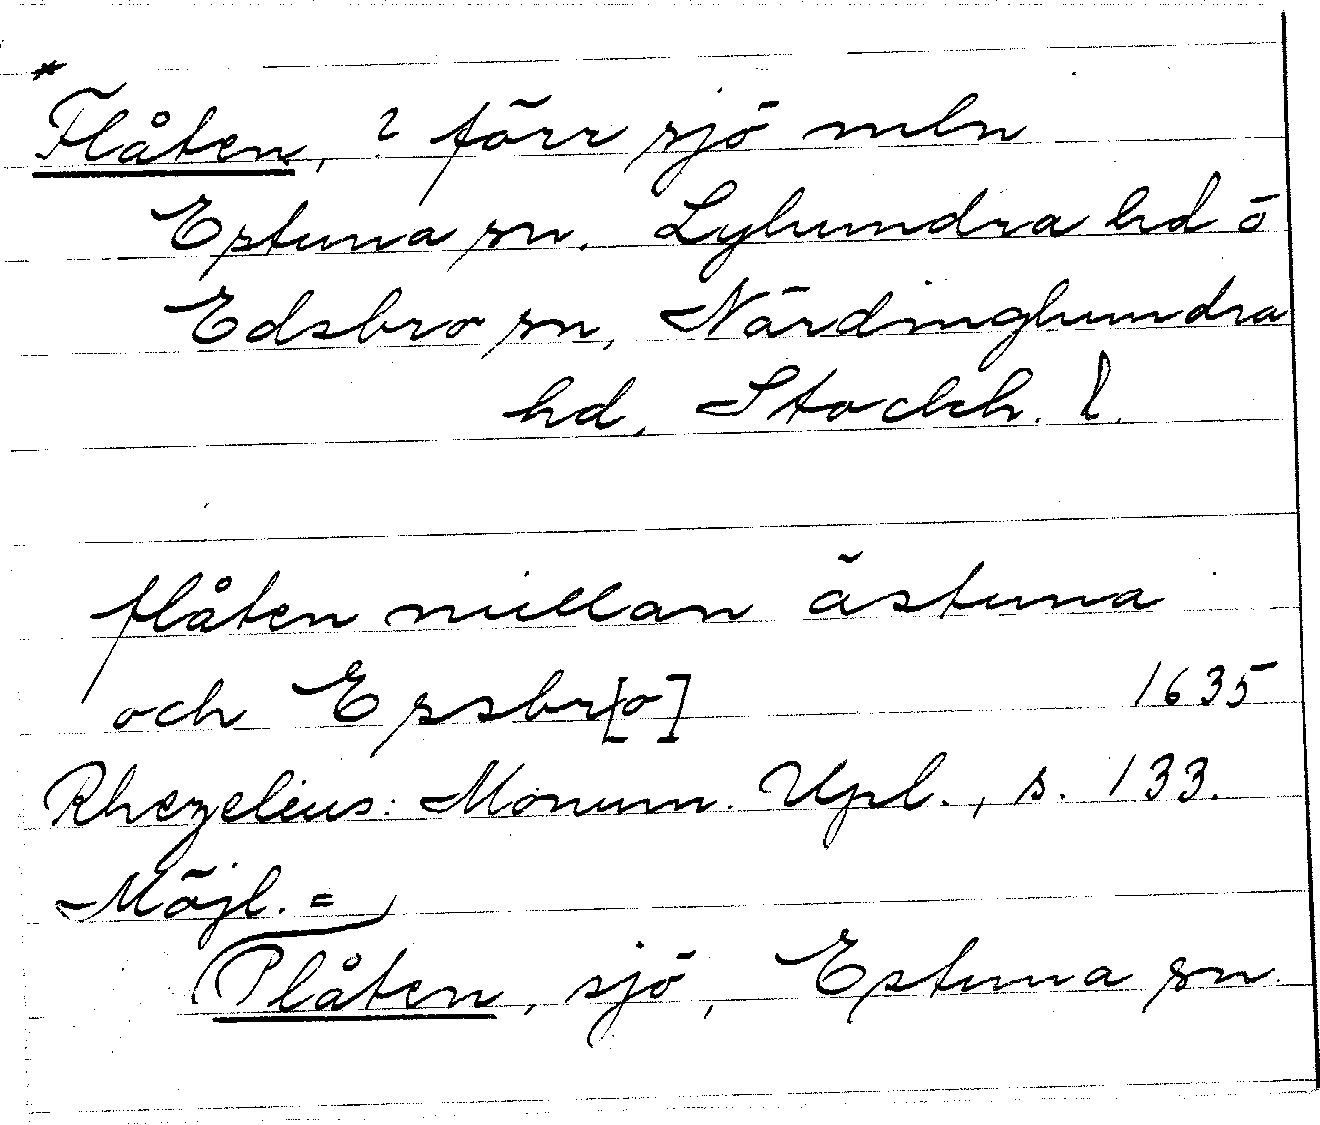 *
Flåten, ? förr sjö mln
Estuna sn. Lyhundra hd o
Edsbro sn, Närdinghundra
hd, Stockh. l.
flåten millan ästuna
och Essbr[o] 1635
Rhezelius: Monum. Upl., s. 133.
Möjl. =
Plåten, sjö, Estuna sn